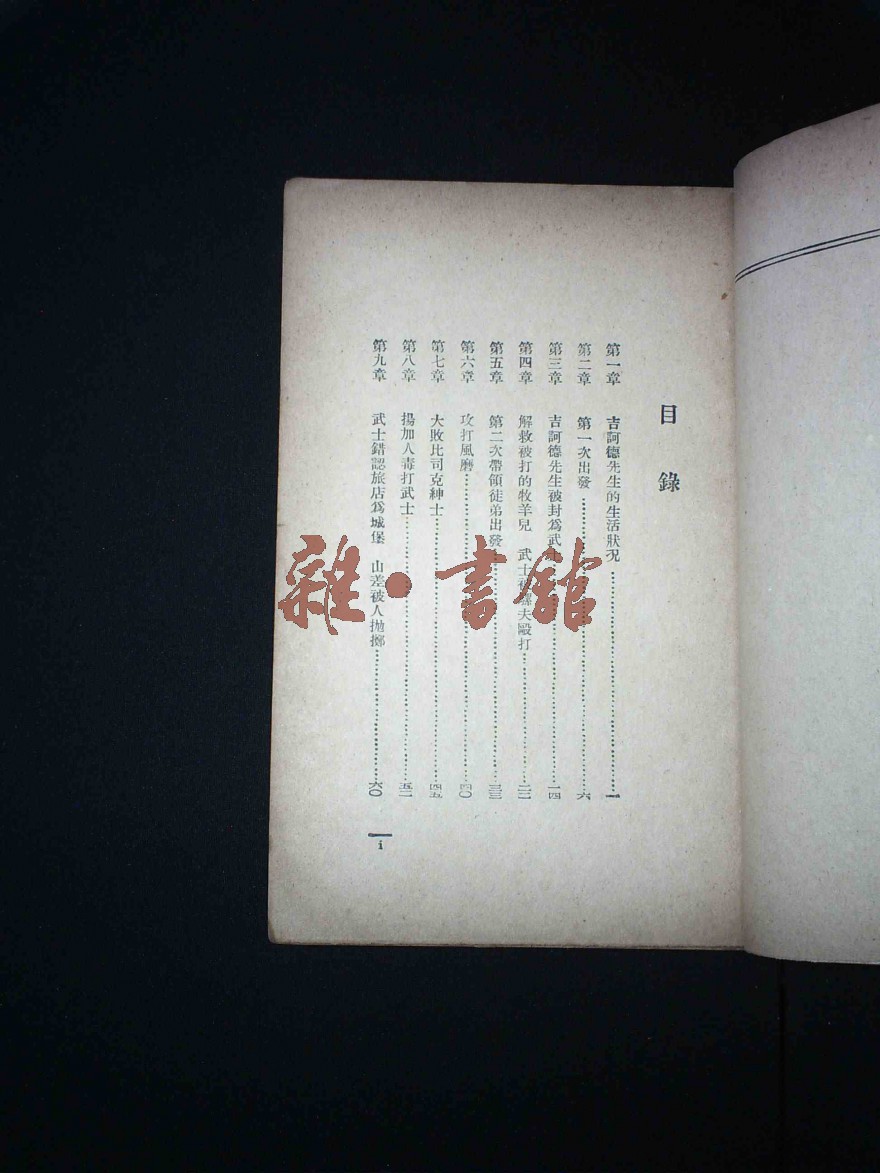 目錄
第一章 吉訶德先生的生活狀况……一
第二章 第一次出發……六
第三章 吉訶德先生被封爲武士……一四
第四章 解救被打的牧羊兒 武士被騾夫毆打……二二
第五章 第二次帶領徒弟出發……三三
第六章 攻打風磨……四〇
第七章 大敗比司克紳士……四五
第八章 揚加人毒打武士……五二
第九章 武士錯認旅店爲城堡 山差被人拋擲……六〇
i
雜·書館